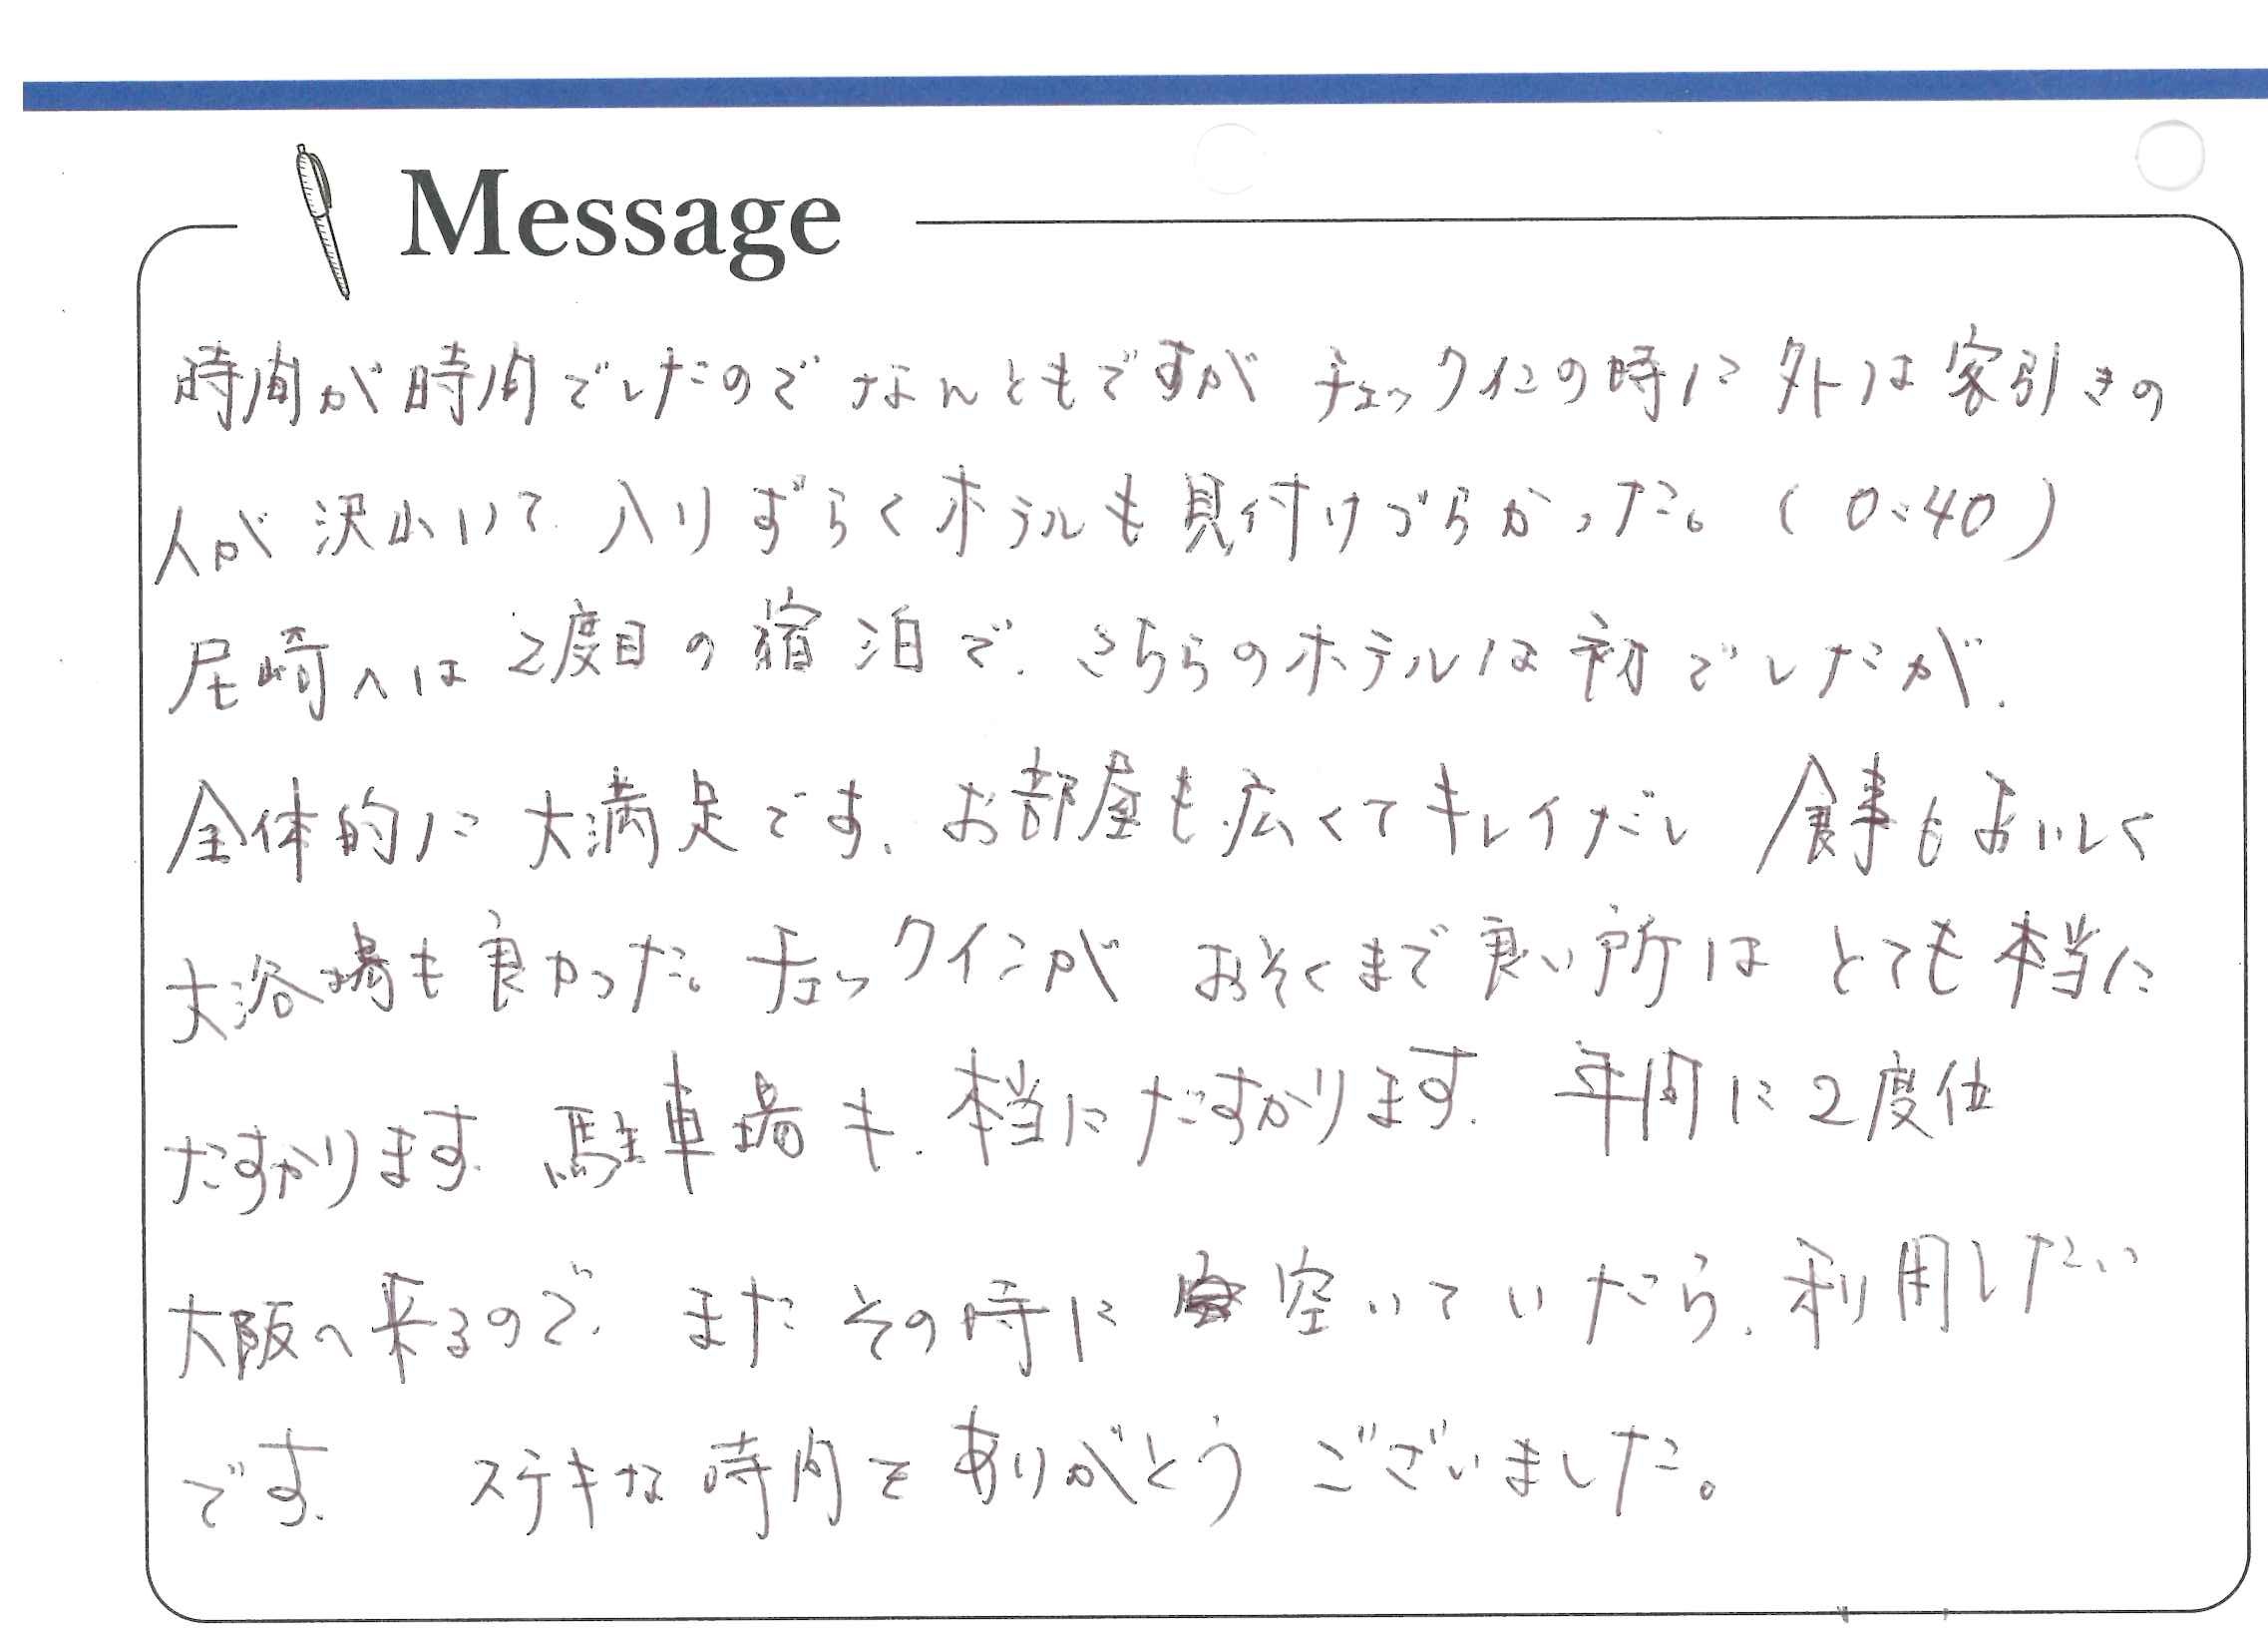 Message
時間が時間でしたのでなんともですがチェックインの時に外は客引きの
人が沢山いて、入りずらくホテルも見付けづらかった。(0:40)
尼崎へは2度目の宿泊で、こちらのホテルは初でしたが、
全体的に大満足です。お部屋も広くてキレイだし食事もおいしく
大浴場も良かった。チェックインがおそくまで良い所はとても本当に
たすかります。駐車場も、本当にたすかります。年間に2度位
大阪へ来るので、またその時に空いていたら、利用したい
です。ステキな時間をありがとうございました。